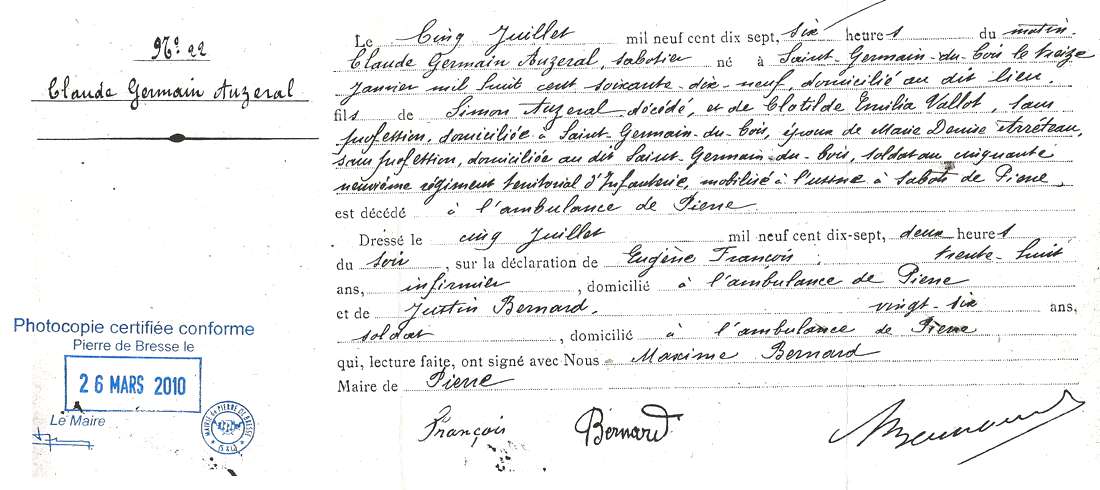 N° 22
Claude Germain Auzeral
Le Cinq Juillet mil neuf cent dix sept, six heures du matin
Claude Germain Auzeral, sabotier né à Saint-Germain-du-Bois le treize
Janvier mil huit cent soixante-dix-neuf domicilié au dit lieu.
fils de Simon Auzeral décédé, et de Clotilde Emilia Vallot, sans
profession, domiciliée à Saint-Germain-du-Bois, époux de Marie Denise Arréteau,
sans profession, domiciliée au dit Saint-Germain-du-Bois, soldat au cinquante
neuvième régiment territorial d'Infanterie, mobilisé à l'usine à sabots de Pierre,
est décédé à l'ambulance de Pierre
Dressé le cinq Juillet mil neuf cent dix-sept, deux heures
du soir, sur la déclaration de Eugène François, trente-huit
ans, infirmier, domicilié à l'ambulance de Pierre
et de Justin Bernard, vingt-six ans,
soldat, domicilié à l'ambulance de Pierre
qui, lecture faite, ont signé avec Nous Maxime Bernard
Maire de Pierre
François Bernard
Photocopie certifiée conforme
Pierre de Bresse le
26 MARS 2010
Le Maire
MAIRIE de PIERRE DE BRESSE